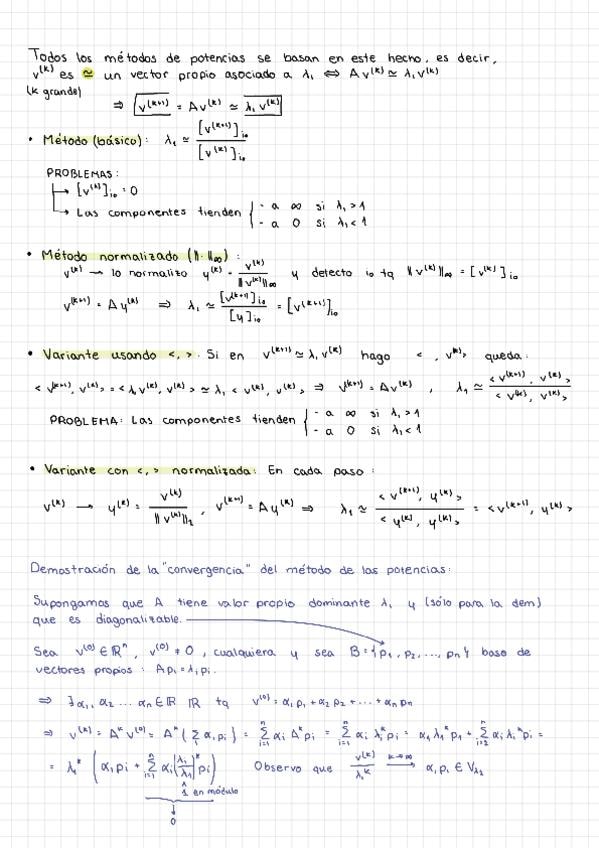 Todos los métodos de potencias se basan en este hecho, es decir,
v^(k) es ≃ un vector propio asociado a λ₁ ⇔ A v^(k) ≃ λ₁ v^(k)
(k grande)
⇒ v^(k+1) = A v^(k) ≃ λ₁ v^(k)
• Método (básico): λ₁ ≃ [v^(k+1)]_i₀ / [v^(k)]_i₀
PROBLEMAS:
↳ [v^(k)]_i₀ = 0
↳ Las componentes tienden { - a ∞ si λ₁ > 1
- a 0 si λ₁ < 1
• Método normalizado (‖·‖∞) :
v^(k) → lo normalizo y^(k) = v^(k) / ‖v^(k)‖∞ y detecto i₀ tq ‖v^(k)‖∞ = [v^(k)]_i₀
v^(k+1) = A y^(k) ⇒ λ₁ ≃ [v^(k+1)]_i₀ / [y]_i₀ = [v^(k+1)]_i₀
• Variante usando <,>. Si en v^(k+1) ≃ λ₁ v^(k) hago < , v^(k)> queda:
<v^(k+1), v^(k)> = <λ v^(k), v^(k)> ≃ λ₁ <v^(k), v^(k)> ⇒ v^(k+1) = A v^(k) , λ₁ ≃ <v^(k+1), v^(k)> / <v^(k), v^(k)>
PROBLEMA: Las componentes tienden { - a ∞ si λ₁ > 1
- a 0 si λ₁ < 1
• Variante con <,> normalizada: En cada paso:
v^(k) → y^(k) = v^(k) / ‖v^(k)‖₂ , v^(k+1) = A y^(k) ⇒ λ₁ ≃ <v^(k+1), y^(k)> / <y^(k), y^(k)> = <v^(k+1), y^(k)>
Demostración de la "convergencia" del método de las potencias:
Supongamos que A tiene valor propio dominante λ₁ y (sólo para la dem)
que es diagonalizable.
Sea v^(0) ∈ ℝⁿ, v^(0) ≠ 0, cualquiera y sea B = {p₁, p₂, ..., pn} base de
vectores propios: A pᵢ = λᵢ pᵢ.
⇒ ∃ α₁, α₂ ... αn ∈ ℝ ℝ tq v^(0) = α₁p₁ + α₂p₂ + ... + αnpn
⇒ v^(k) = A^k v^(0) = A^k (Σ αᵢpᵢ) = Σ_{i=1}^n αᵢ A^k pᵢ = Σ_{i=1}^n αᵢ λᵢ^k pᵢ = α₁ λ₁^k p₁ + Σ_{i=2}^n αᵢ λᵢ^k pᵢ =
= λ₁^k (α₁pᵢ + Σ_{i=1}^n αᵢ |λᵢ/λ₁|^k pᵢ) Observo que v^(k) / λ^k → (k→∞) α₁p₁ ∈ V_λ₁
1 en módulo
↓
0